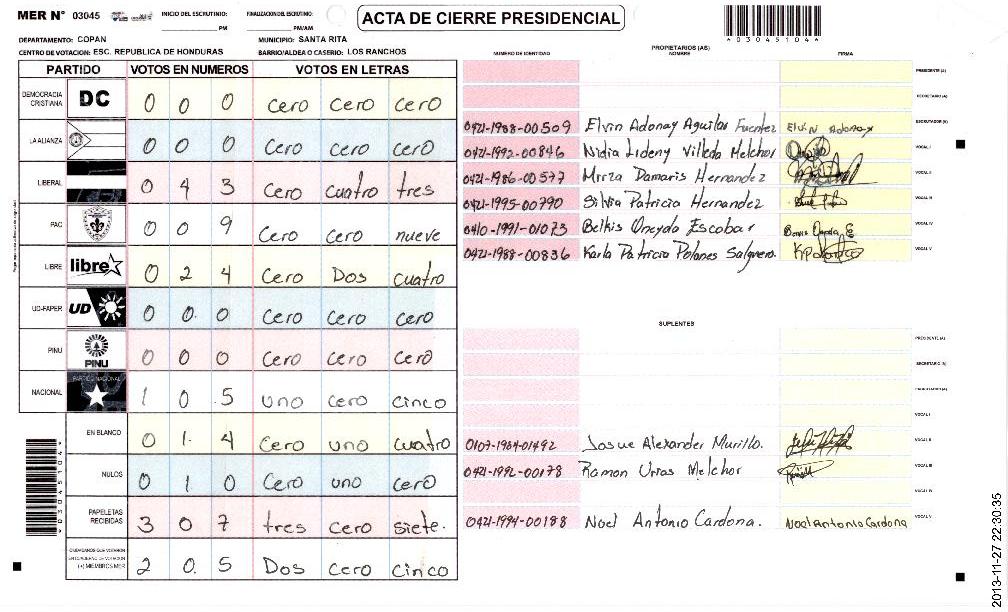 MER N° 03045 INICIO DEL ESCRUTINIO: PM FINALIZACION DEL ESCRUTINIO: PM/AM ACTA DE CIERRE PRESIDENCIAL
*03045104*
DEPARTAMENTO: COPAN MUNICIPIO: SANTA RITA
CENTRO DE VOTACION: ESC. REPUBLICA DE HONDURAS BARRIO/ALDEA O CASERIO: LOS RANCHOS
PARTIDO VOTOS EN NUMEROS VOTOS EN LETRAS
DEMOCRACIA CRISTIANA DC 0 0 0 Cero Cero Cero
LA ALIANZA 0 0 0 Cero Cero Cero
LIBERAL 0 4 3 Cero cuatro tres
PAC 0 0 9 Cero Cero nueve
LIBRE libre 0 2 4 Cero Dos cuatro
UD-FAPER UD 0 0. 0 Cero Cero Cero
PINU PINU 0 0 0 Cero Cero Cero
NACIONAL PARTIDO NACIONAL 1 0 5 uno cero cinco
EN BLANCO 0 1. 4 Cero uno cuatro
NULOS 0 1 0 Cero uno cero
PAPELETAS RECIBIDAS 3 0 7 tres cero siete.
CIUDADANOS QUE VOTARON EN CUADERNO DE VOTACION (+) MIEMBROS MER 2 0. 5 Dos Cero Cinco
PROPIETARIOS (AS)
NUMERO DE IDENTIDAD NOMBRE FIRMA
PRESIDENTE (A)
SECRETARIO (A)
0421-1988-00509 Elvin Adonay Aguilar Fuentez Elvin Adonay ESCRUTADOR (A)
0421-1992-00846 Nidia Lideny Villeda Melchor VOCAL I
0421-1986-00577 Mirza Damaris Hernandez VOCAL II
0421-1995-00790 Silvia Patricia Hernandez VOCAL III
0410-1991-01073 Belkis Oneyda Escobar VOCAL IV
0421-1988-00836 Karla Patricia Polanes Salguero. VOCAL V
SUPLENTES
PRESIDENTE (A)
SECRETARIO (A)
ESCRUTADOR (A)
VOCAL I
0107-1984-01492 Josue Alexander Murillo. VOCAL II
0421-1992-00178 Ramon Urias Melchor VOCAL III
VOCAL IV
0421-1994-00188 Noel Antonio Cardona. Noel Antonio Cardona VOCAL V
2013-11-27 22:30:35